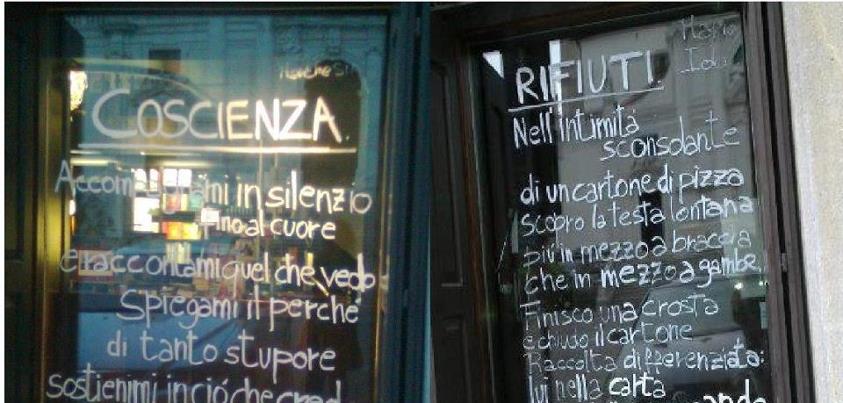 COSCIENZA
Accompagnami in silenzio
fino al cuore
e raccontami quel che vedo
Spiegami il perché
di tanto stupore
sostienimi in ciò che
RIFIUTI
Nell'intimità
sconsolante
di un cartone di pizza
scopro la testa lontana
più in mezzo a braccia
che in mezzo a gambe.
Finisco una crosta
e chiudo il cartone
Raccolta differenziata:
lui nella carta